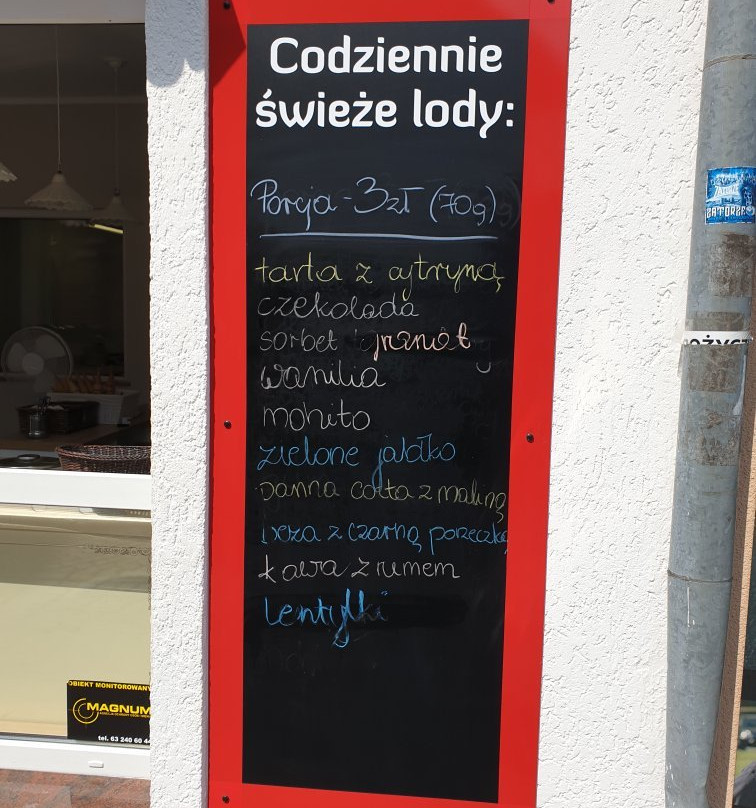 Codziennie
świeże lody:
Porcja - 3zł (70g)
tarta z cytryną
czekolada
sorbet granat
wanilia
mohito
zielone jabłko
panna cotta z maliną
beza z czarną porzeczką
kawa z rumem
lentylki
ZATORZE
OBIEKT MONITOROWANY
MAGNUM
tel. 63 240 60 44